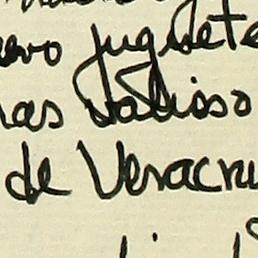 evo juguete
as valioso
de Veracru